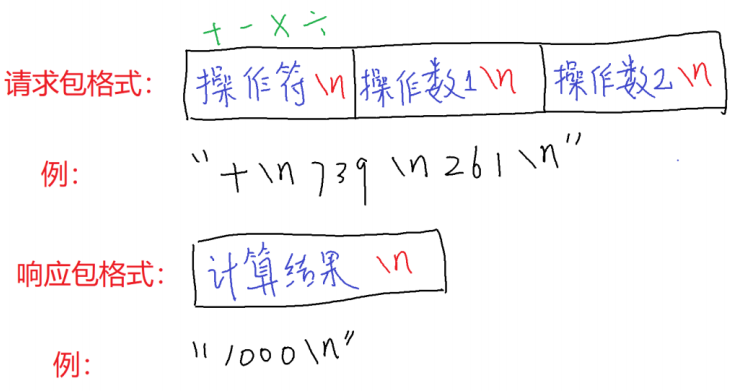 + - × ÷
请求包格式： 操作符\n 操作数1\n 操作数2\n
例： "+\n739\n261\n"
响应包格式： 计算结果 \n
例： "1000\n"